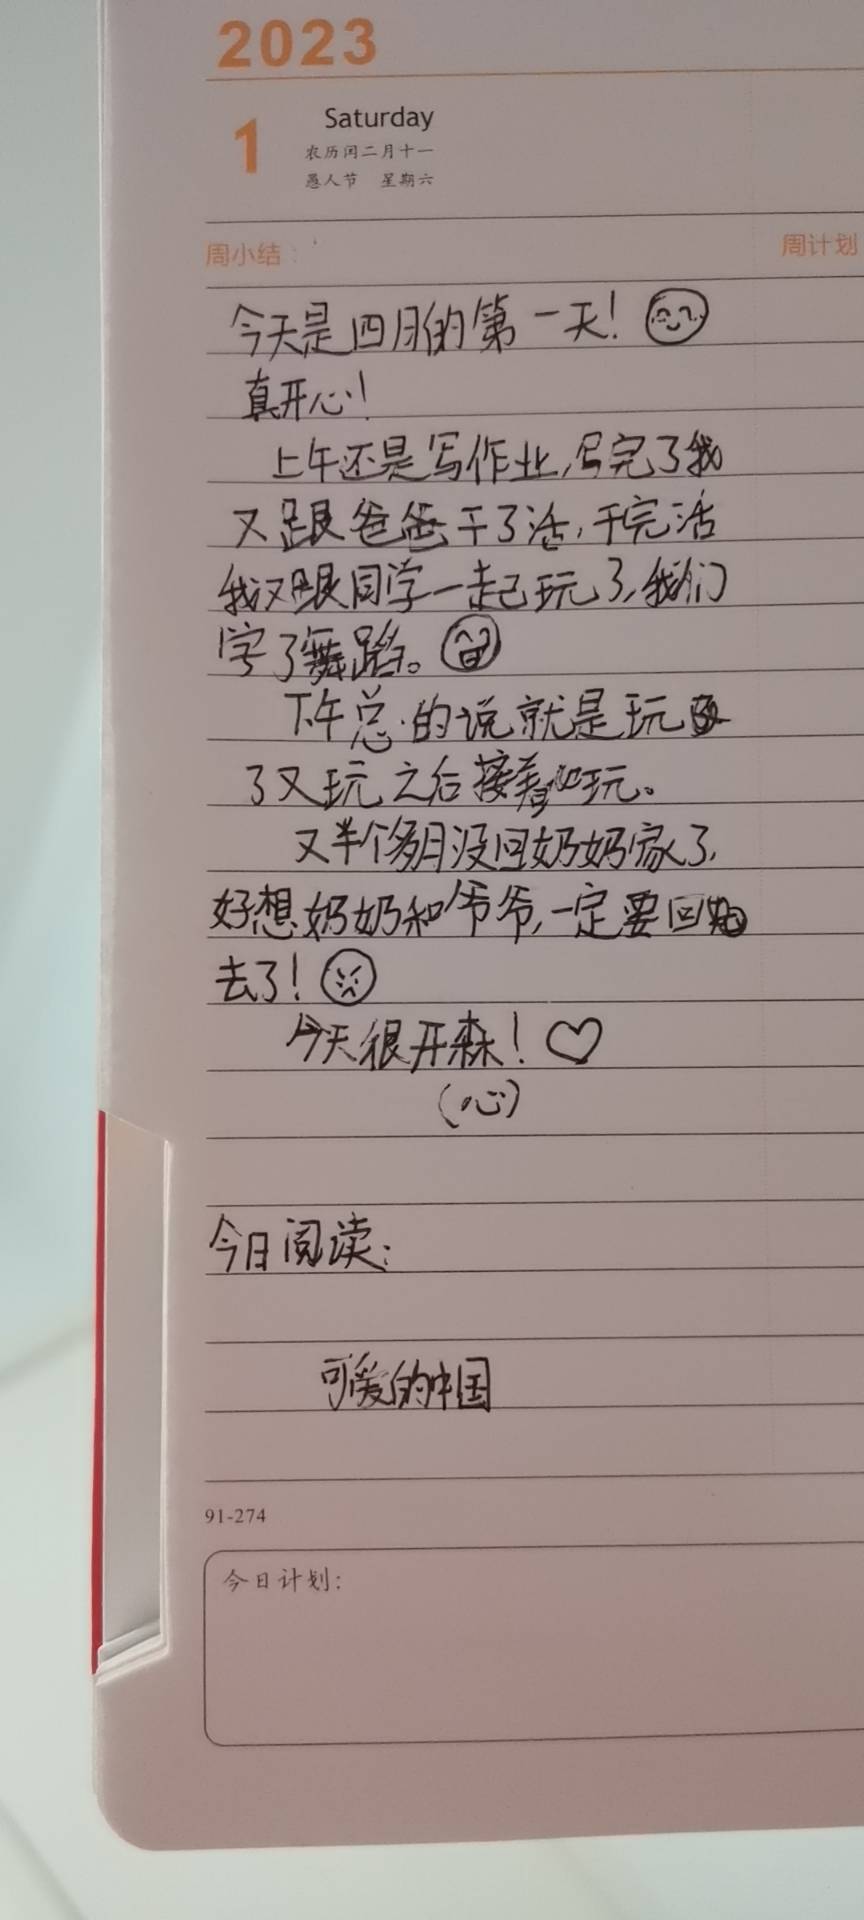 2023
1
Saturday
农历闰二月十一
愚人节 星期六
周小结：
周计划
今天是四月的第一天！
真开心！
上午还是写作业，写完了我
又跟爸爸干了活，干完活
我又跟同学一起玩了，我们
学了舞蹈。
下午总的说就是玩
了又玩之后接着玩。
又半个多月没回奶奶家了，
好想奶奶和爷爷，一定要回
去了！
今天很开森！
（心）
今日阅读：
可爱的中国
91-274
今日计划：